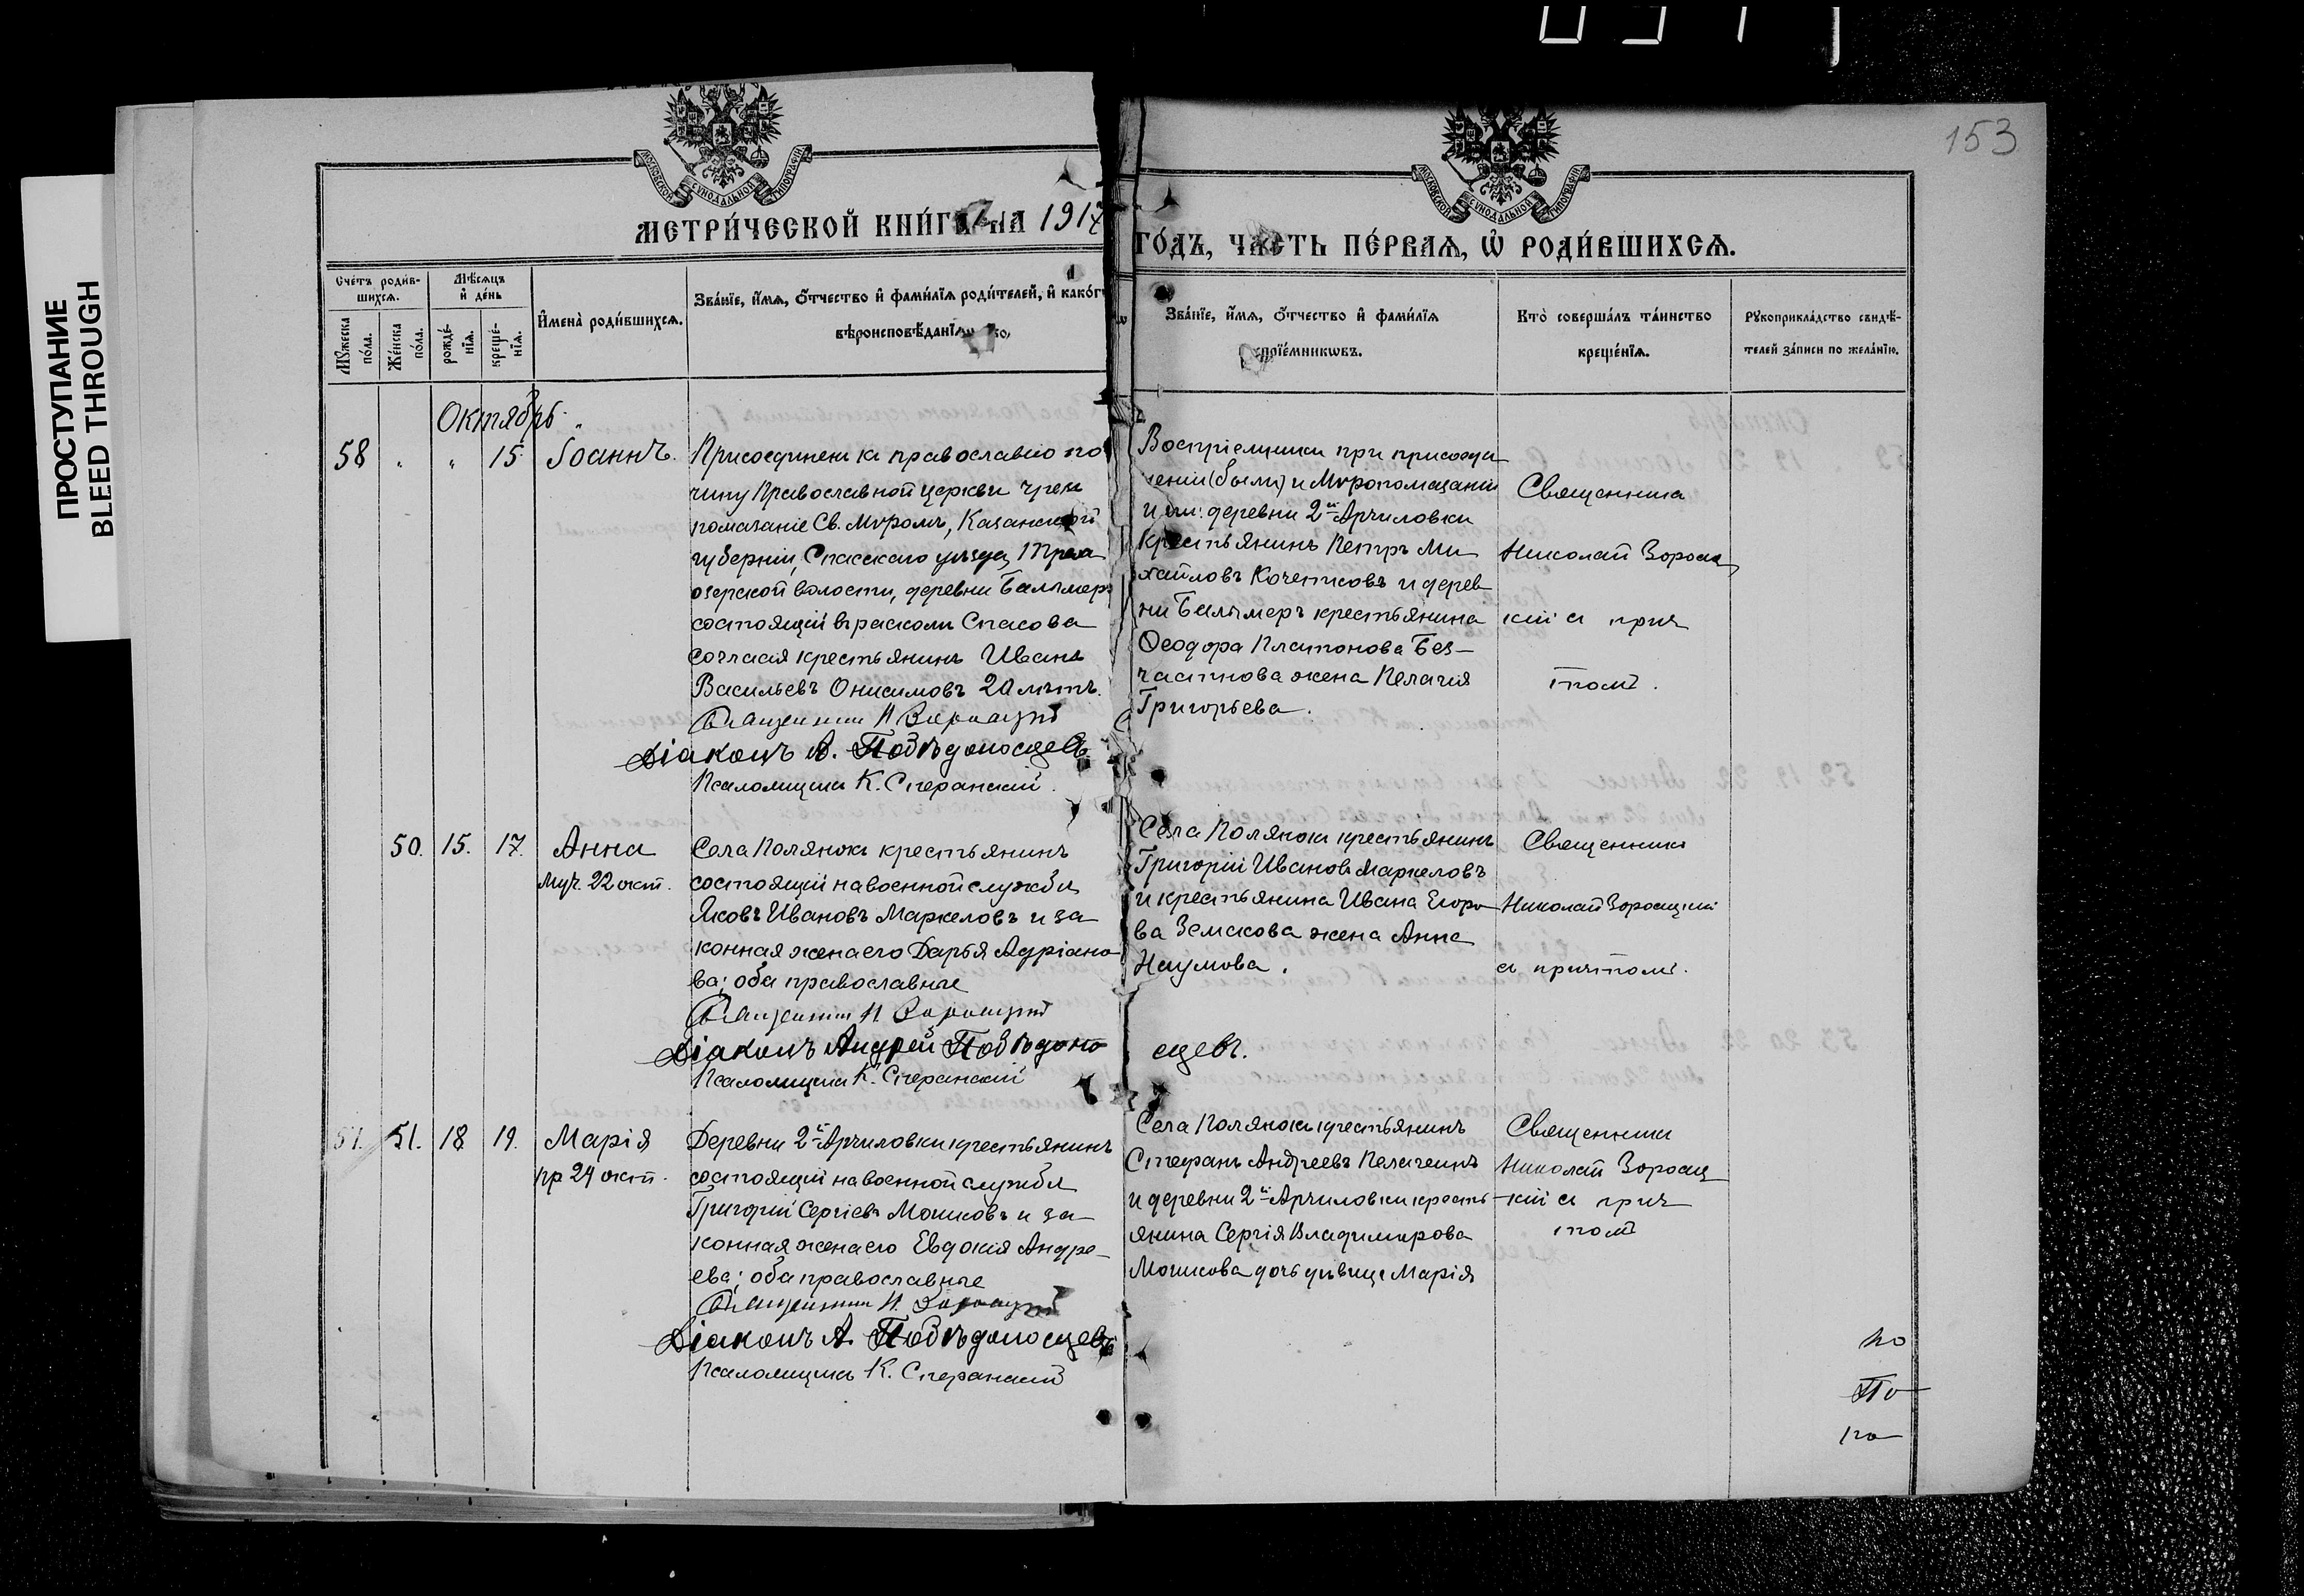 ПРОСТУПАНИЕ
BLEED THROUGH
153
МОСКОВСКОЙ СѴНОДАЛЬНОЙ ТИПОГРАФІИ
МОСКОВСКОЙ СѴНОДАЛЬНОЙ ТИПОГРАФІИ
МЕТРИ́ЧЕСКОЙ КНИ́ГИ НА 1917
ГО́ДЪ, ЧАСТЬ ПЕ́РВАЯ, Ѡ҆ РОДИ́ВШИХСЯ.
Сче́тъ роди́в-
шихся.
Мѣ́сяцъ
и҆ де́нь
Мꙋ́жеска по́ла.
Же́нска по́ла.
рожде́-нїя.
креще́-нїя.
И҆мена̀ роди́вшихся.
Зва́нїе, и҆́мя, о҆́тчество и҆ фами́лїя роди́телей, и҆ како́г
вѣроисповѣ́данїя
Зва́нїе, и҆́мя, о҆́тчество и҆ фами́лїя
прїе́мникѡвъ.
Кто̀ соверша́лъ та́инство
креще́нїя.
Рꙋкоприкла́дство свидѣ́-
телей за́писи по жела́нїю.
Октябрь
58 " " 15 Іоаннъ.
Присоединенъ къ православію по
чину Православной церкви чрезъ
помазаніе Св. Мѵромъ, Казанской
губерніи, Спасскаго уѣзда, Трех
озерской волости, деревни Балымеръ
состоящій въ расколѣ Спасова
согласія крестьянинъ Иванъ
Васильевъ Онисимовъ 20 лѣтъ.
Священникъ Н. Зороацкій
Діаконъ А. Побѣдоносцевъ
Псаломщикъ К. Сперанскій.
Воспріемники при присоеди
неніи (были) и Мѵропомазаніи
деревни 2й Арчиловки
крестьянинъ Петръ Ми
хайловъ Кочетковъ и дерев
ни Балымеръ крестьянина
Ѳеодора Платонова Без-
частнова жена Пелагія
Григорьева.
Священникъ
Николай Зороац
кій съ прич
томъ.
50. 15. 17. Анна
муч. 22 окт.
Села Полянокъ крестьянинъ
состоящій на военной службѣ
Яковъ Ивановъ Маркеловъ и за
конная жена его Дарья Адріано
ва; оба православные
Священникъ Н. Зороацкій
Діаконъ Андрей Побѣдоно
сцевъ.
Псаломщикъ К. Сперанскій
Села Полянокъ крестьянинъ
Григорій Ивановъ Маркеловъ
и крестьянина Ивана Егоро
ва Земскова жена Анна
Наумова.
Священникъ
Николай Зороацкій
съ причтомъ.
51. 51. 18 19. Марія
пр 24 окт.
Деревни 2й Арчиловки крестьянинъ
состоящій на военной службѣ
Григорій Сергіевъ Мошковъ и за
конная жена его Евдокія Андре-
ева; оба православные
Священникъ Н. Зороацкій
Діаконъ А. Побѣдоносцевъ
Псаломщикъ К. Сперанскій
Села Полянокъ крестьянинъ
Стефанъ Андреевъ
и деревни 2й Арчиловки кресть-
янина Сергія Владимирова
Мошкова дочь дѣвица Марія
Священникъ
Николай Зороац
кій съ прич
томъ
по
По
по